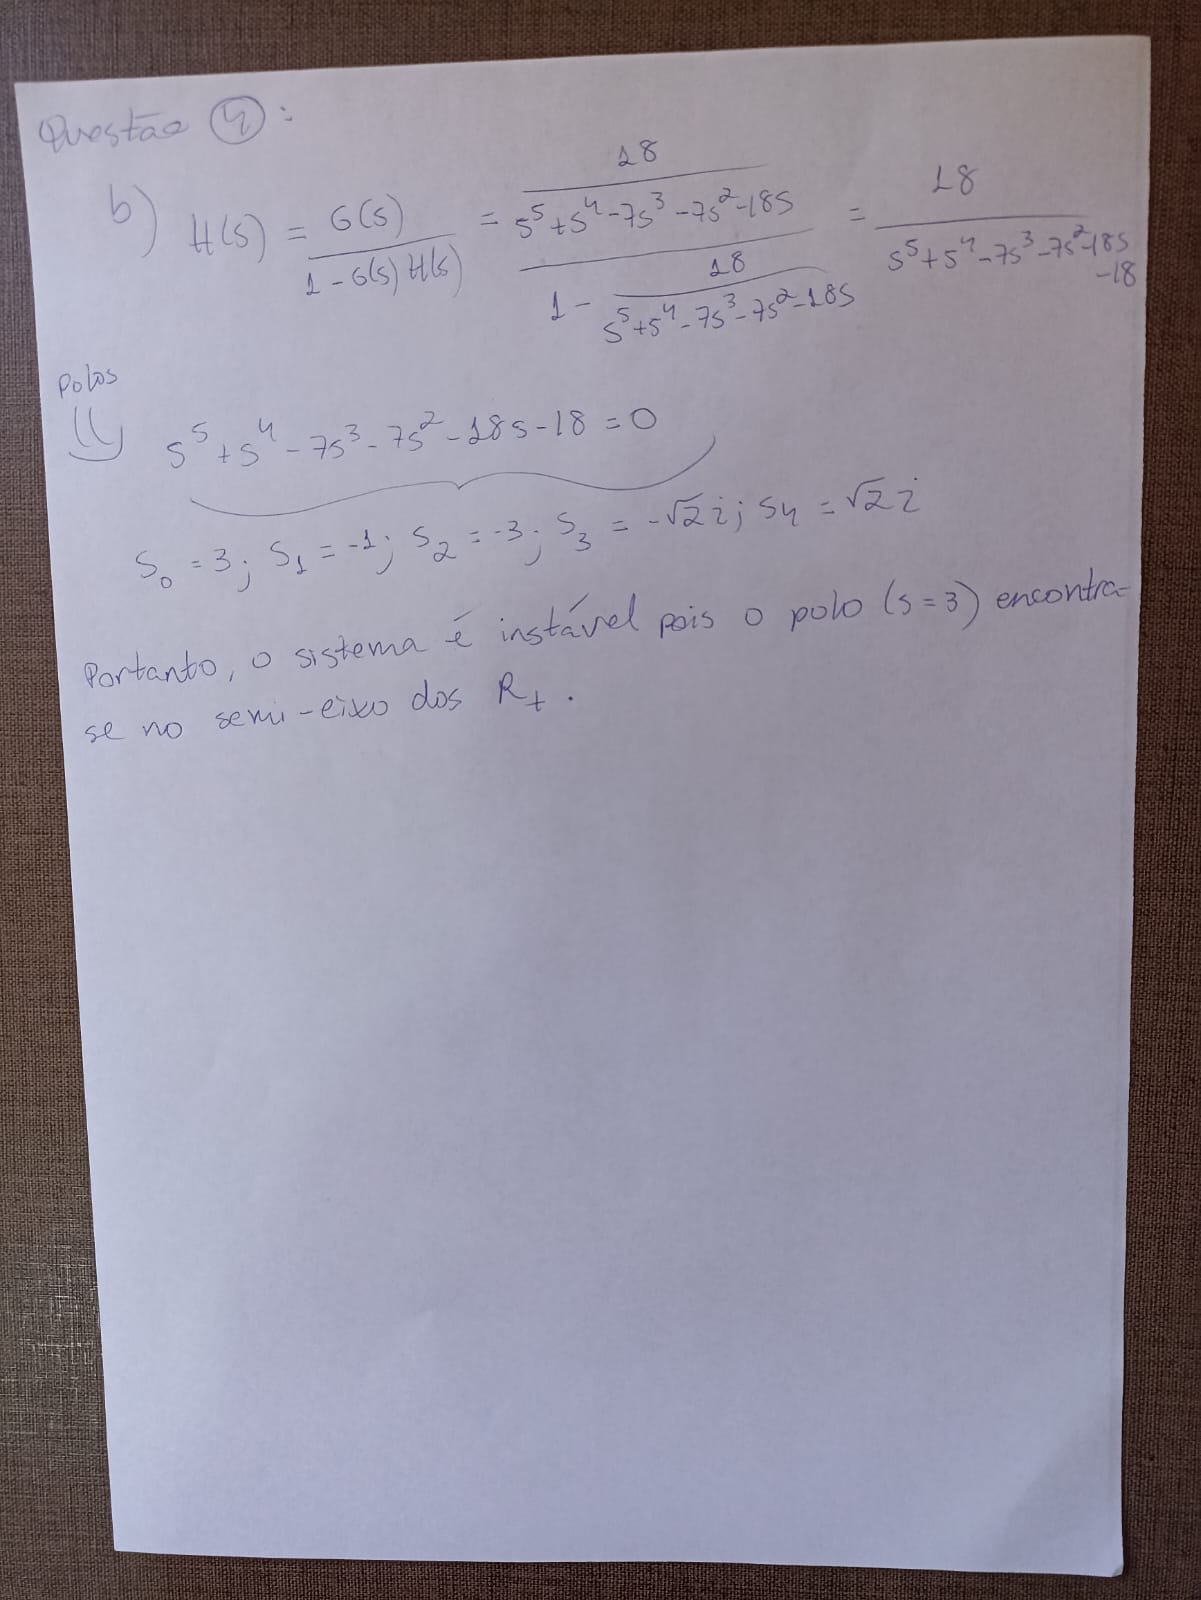 Questão 4:
b) H(s) = G(s) / (1 - G(s) H(s)) = (18 / (s^5 + s^4 - 7s^3 - 7s^2 - 18s)) / (1 - 18 / (s^5 + s^4 - 7s^3 - 7s^2 - 18s)) = 18 / (s^5 + s^4 - 7s^3 - 7s^2 - 18s - 18)
Polos
s^5 + s^4 - 7s^3 - 7s^2 - 18s - 18 = 0
S_0 = 3; S_1 = -1; S_2 = -3; S_3 = -√2 i; S_4 = √2 i
Portanto, o sistema é instável pois o polo (s = 3) encontra-
se no semi-eixo dos R_+.